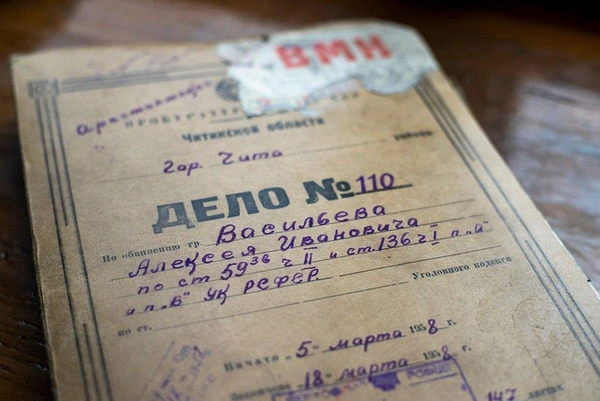 ВМН
Читинской области
гор. Чита
района
ДЕЛО № 110
По обвинению гр. Васильева
Алексея Ивановича
по ст 59³⁶ ч II и ст. 136 ч I п „а"
и п. „В" УК РСФСР.
по ст.
Уголовного кодекса
Начато „5- марта 1958 г.
18- марта 1958 г.
147 листах